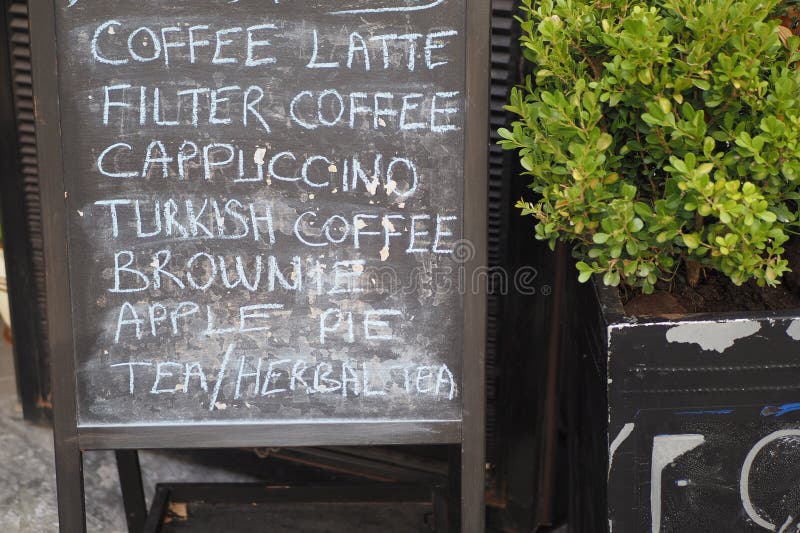 COFFEE LATTE
FILTER COFFEE
CAPPUCCINO
TURKISH COFFEE
BROWNIE
APPLE PIE
TEA/HERBAL TEA
dreamstime